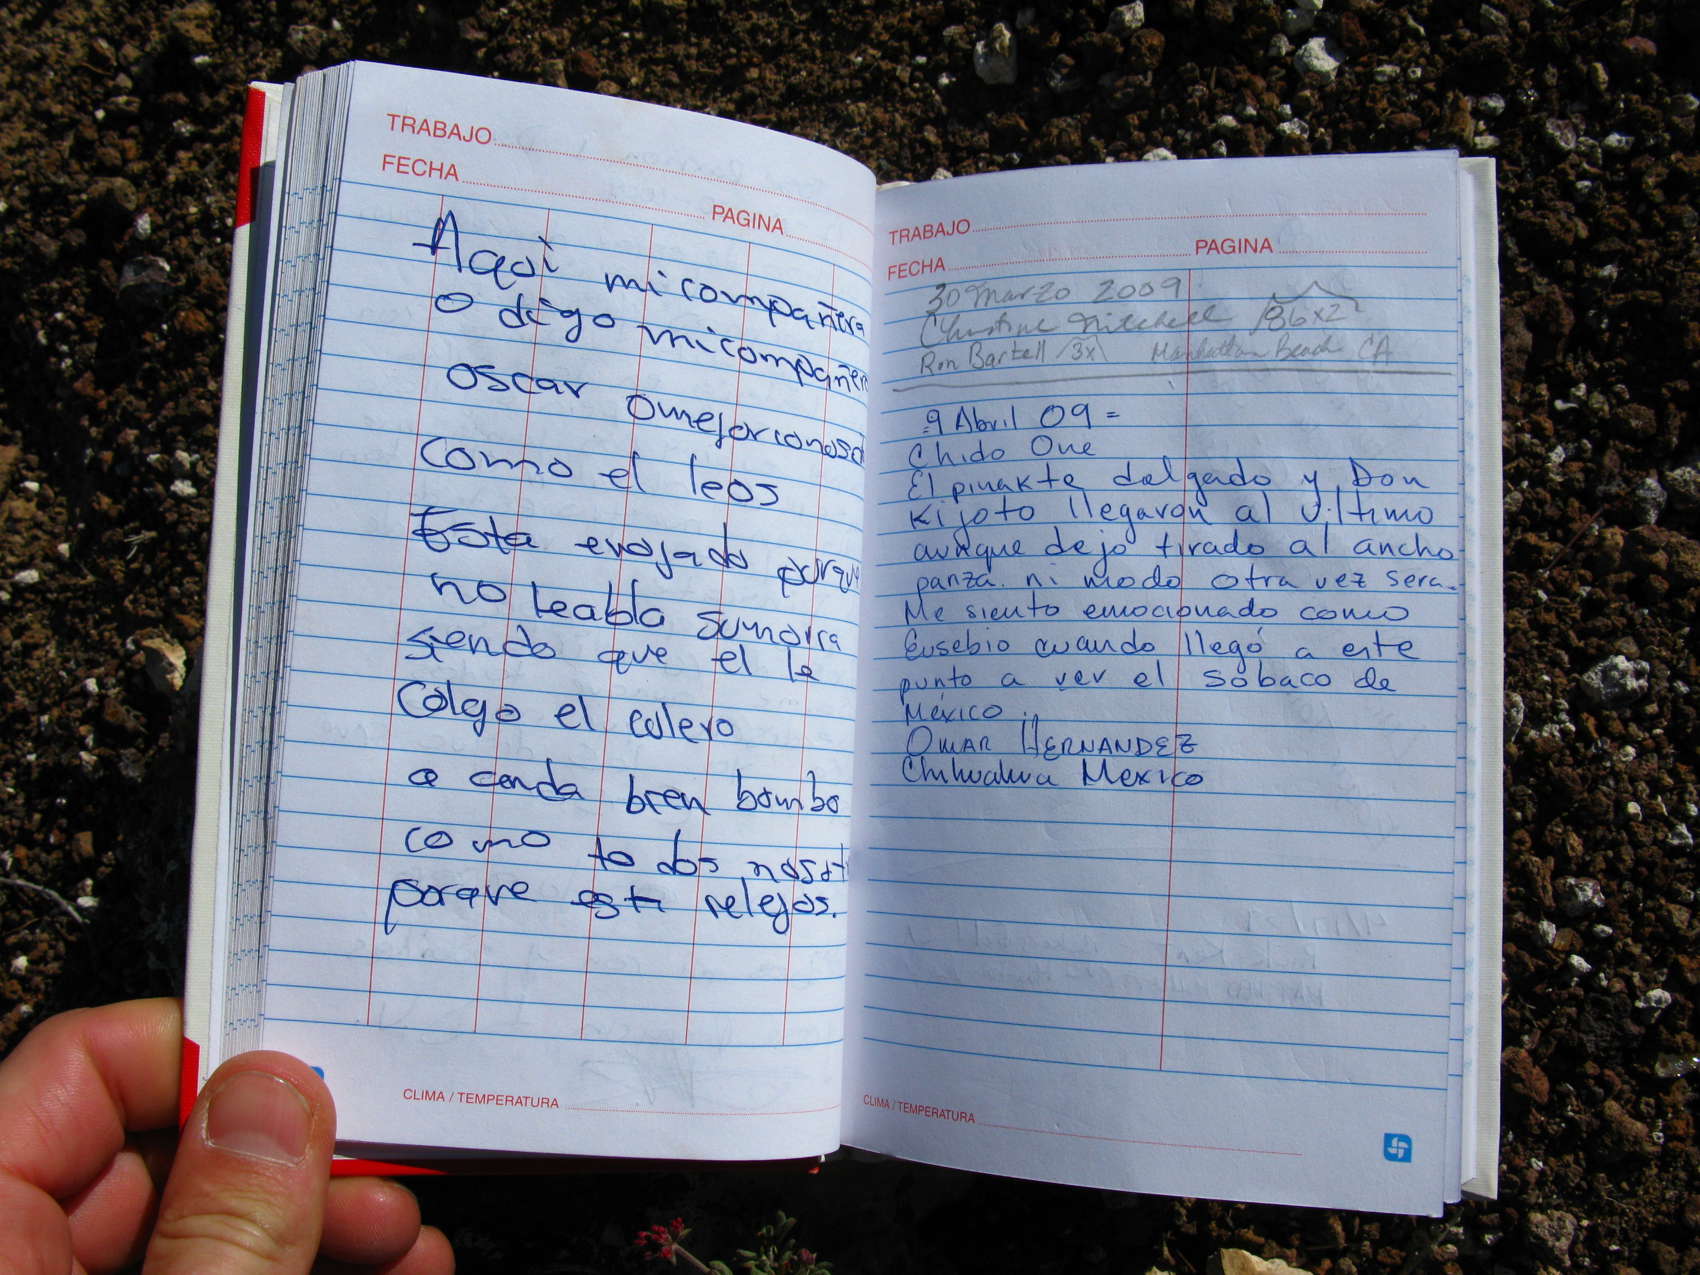 TRABAJO
FECHA
PAGINA
Aqoi mi compañera
o digo mi compañero
oscar omejorconosci
como el leos
Esta enojado porque
no leabla sumorra
siendo que el le
Colgo el culero
a cenda bren bombo
como to dos nosotr
porque esta relejos.
CLIMA / TEMPERATURA
TRABAJO
PAGINA
FECHA
30 Marzo 2009
Christine Mitchell 86x2
Ron Bartell 3x Manhattan Beach CA
9 Abril 09 =
Chido One
El pinakte delgado y Don
Kijoto llegaron al ultimo
aunque dejo tirado al ancho
panza. ni modo otra vez sera.
Me siento emocionado como
Eusebio cuando llegó a este
punto a ver el sobaco de
México.
OMAR HERNANDEZ
Chihuahua Mexico
CLIMA / TEMPERATURA